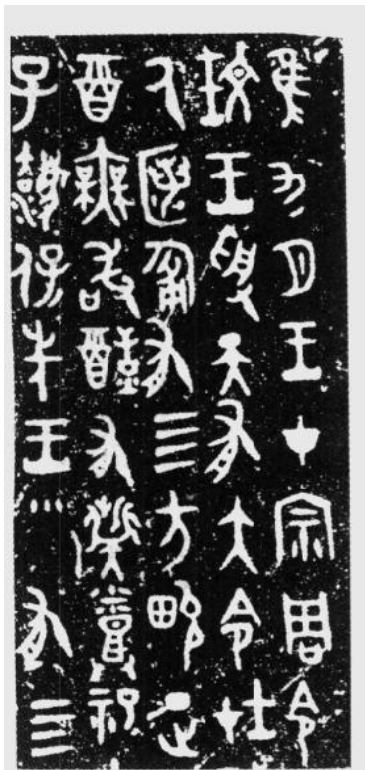 隹九月王才宗周令
玟王受天有大令在
氒匿匍有亖方畯正
酉無敢酖有祡烝祀
子灋保先王有亖